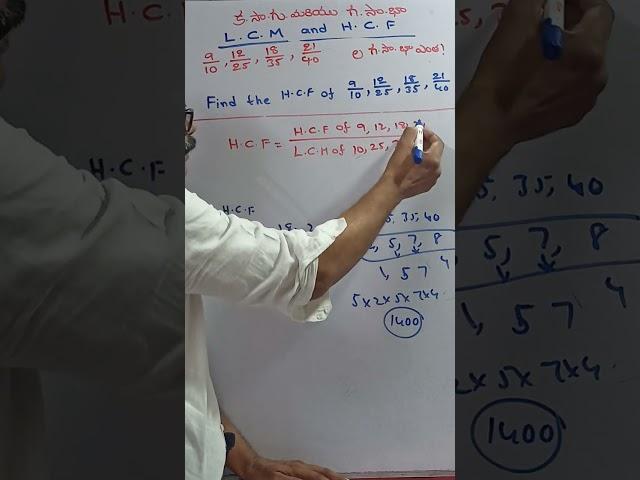 క.సా.గు మరియు గ.సా.భా
L.C.M and H.C.F
9/10, 12/25, 18/35, 21/40 ల గ.సా.భా ఎంత?
Find the H.C.F of 9/10, 12/25, 18/35, 21/40
H.C.F = H.C.F of 9, 12, 18, / L.C.M of 10, 25,
H.C.F
5, 35, 40
5, 7, 8
1, 5 7 4
5x2x5x7x4
1400
H.C.F
5, 35, 40
5, 7, 8
1, 5 7 4
2x5x7x4
1400